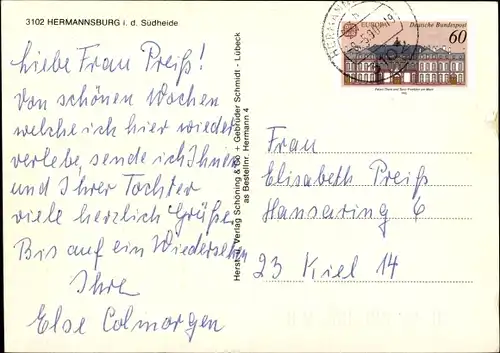 3102 HERMANNSBURG i. d. Südheide
Liebe Frau Preiß!
Von schönen Wochen
welche ich hier wieder
verlebe, sende ich Ihnen
und Ihrer Tochter
viele herzlich Grüße.
Bis auf ein Wiedersehn
Ihre
Else Colmorgen
Verlag Schöning & Co + Gebrüder Schmidt - Lübeck
Bestellnr. Hermann 4
EUROPA
Deutsche Bundespost
60
Frau
Elisabeth Preiß
Hansaring 6
23 Kiel 14